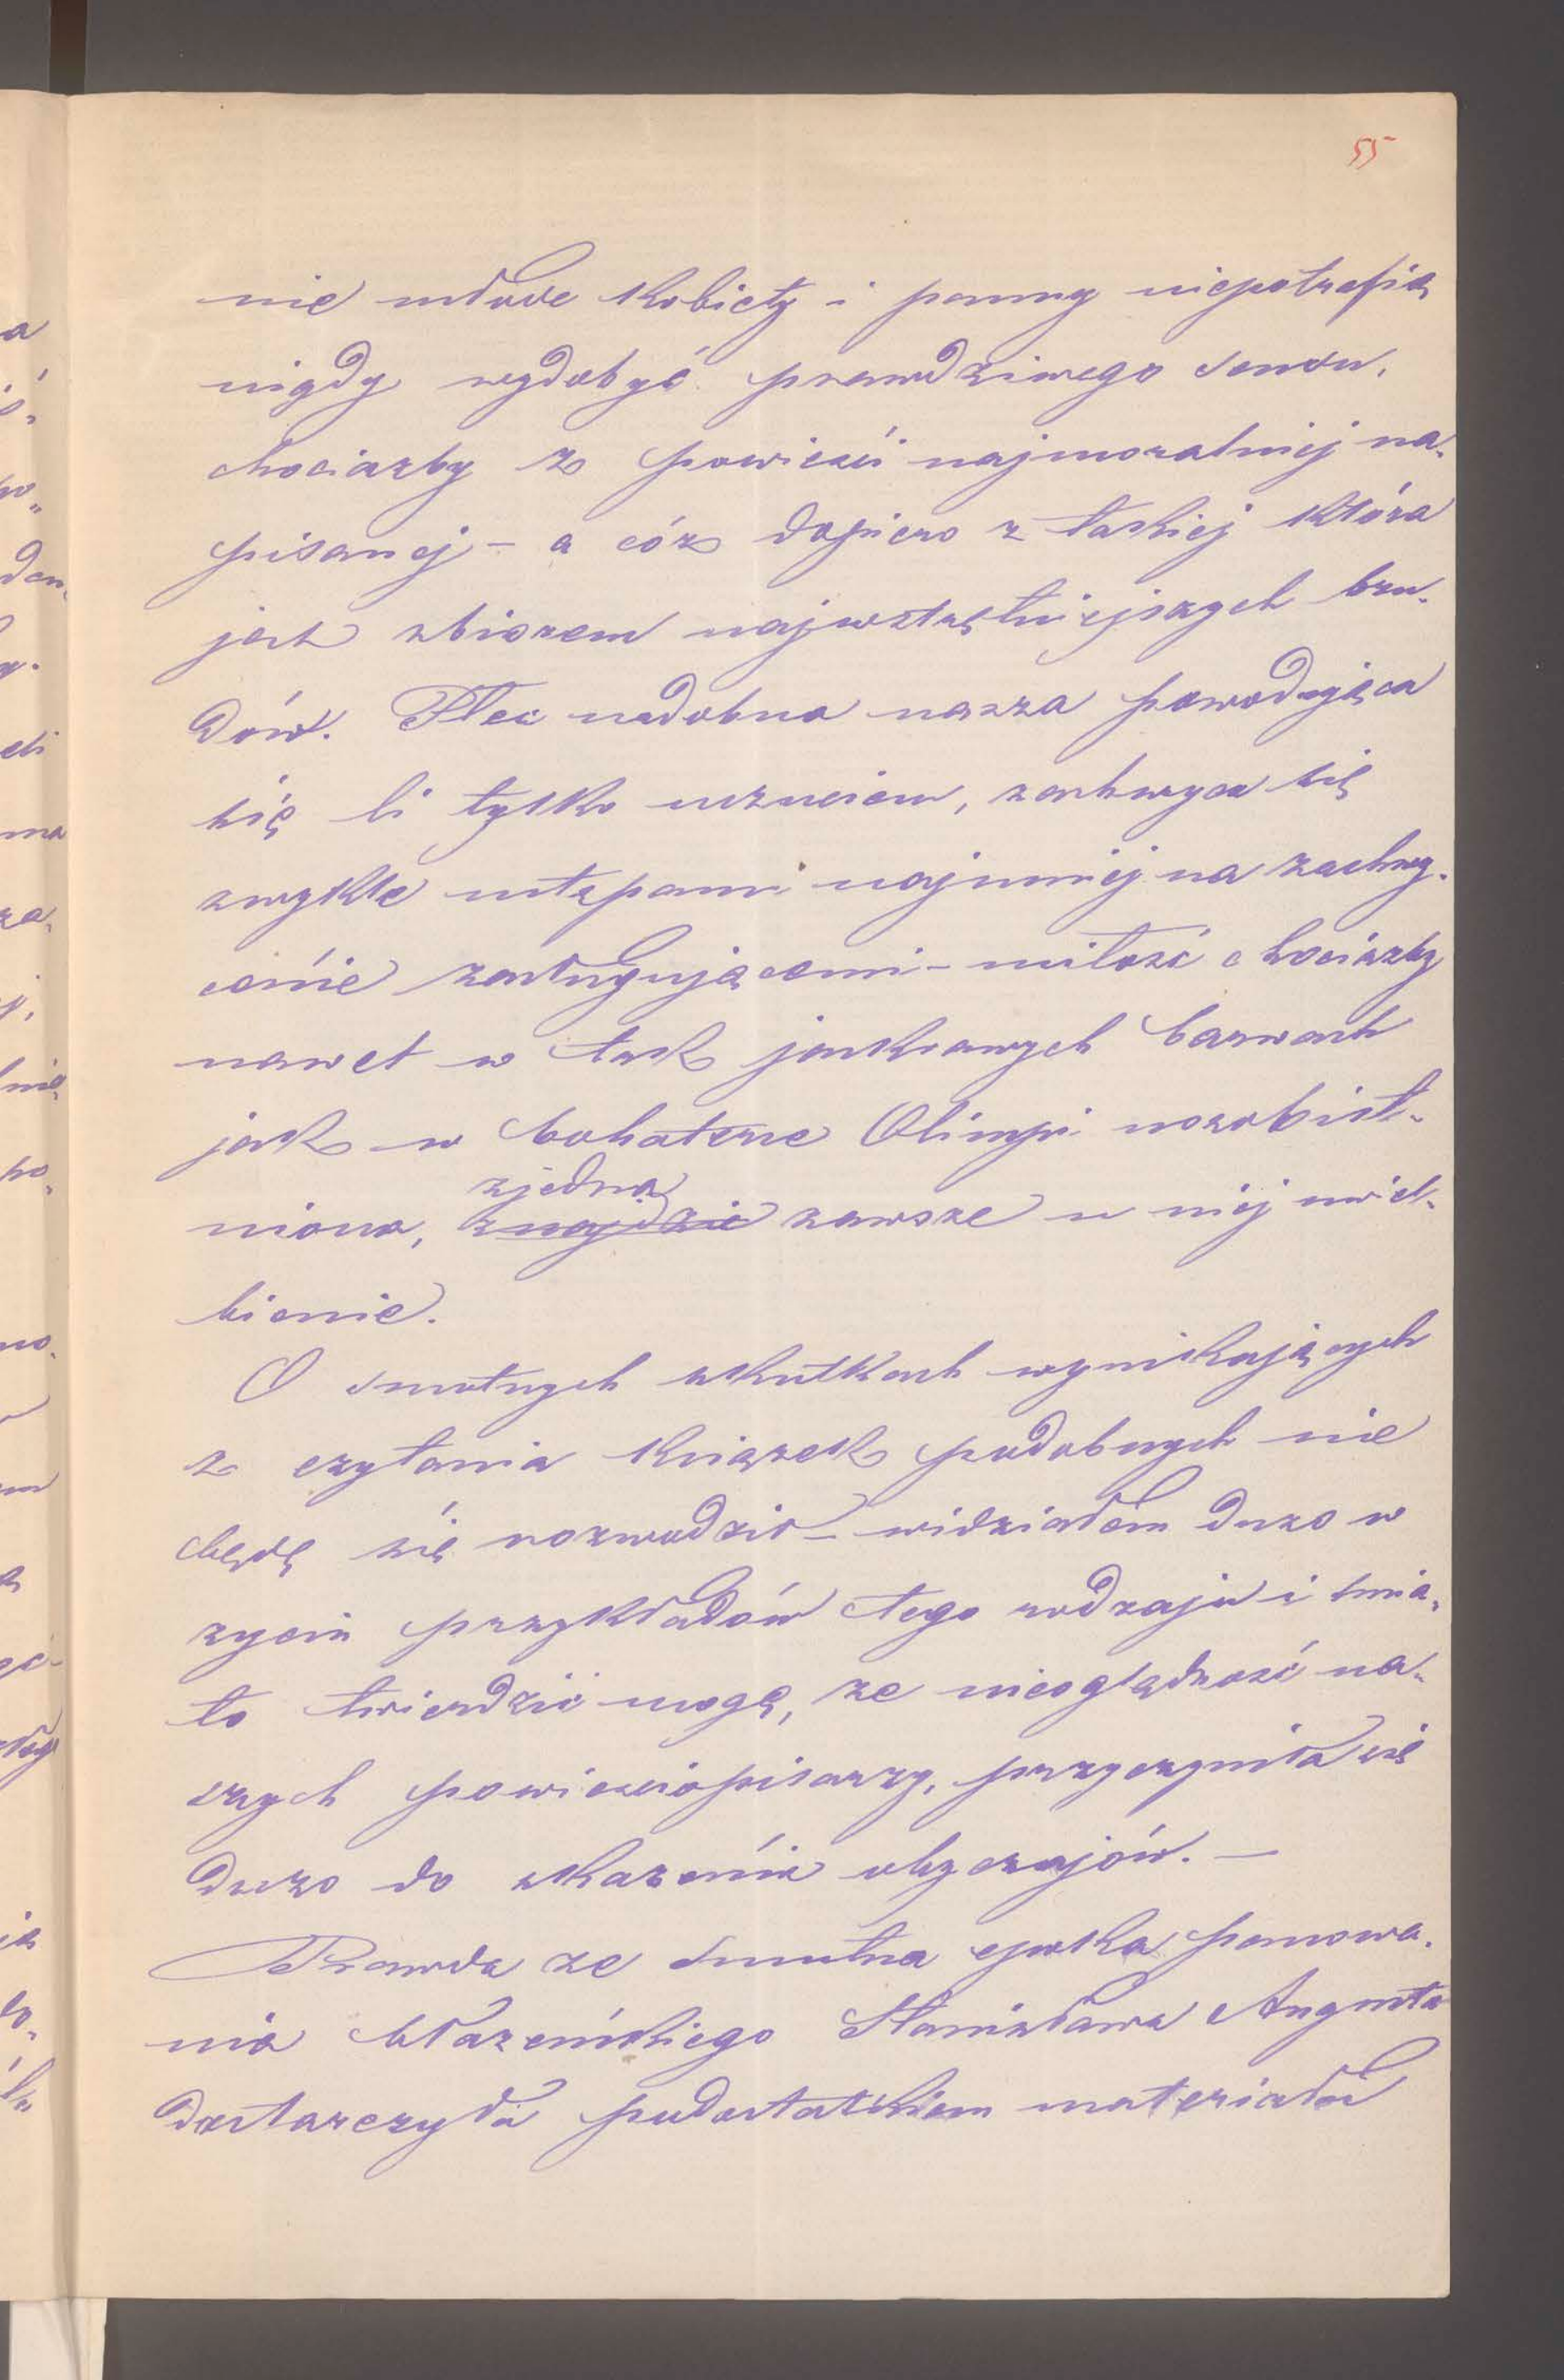 55
nie młode kobiety i panny niepotrafią
nigdy wydobyć prawdziwego sensu,
chociażby z powieści najmoralniej na-
pisanej – a cóż dopiero z takiej która
jest zbiorem najwstrętniejszych bru-
dów. Płeć nadobna nasza powodująca
się li tylko uczuciem, zachwyca się
zwykle ustępami najmniej na zachwy-
cenie zasługującemi – miłość chociażby
nawet w tak jaskrawych barwach
jak w bohaterce Olimpi uosobist-
niona, zjedna
znajdzie zawsze u niej uwiel-
bienie.
O smutnych skutkach wynikających
z czytania książek podobnych nie
będę się rozwodził – widziałem dużo w
życiu przykładów tego rodzaju i śmia-
ło twierdzić mogę, że nieoględność na-
szych powieściopisarzy, przyczyniła się
dużo do skażenia obyczajów. –
Prawda że smutna epoka panowa-
nia błazeńskiego Stanisława Augusta
dostarczyła podostatkiem materiału